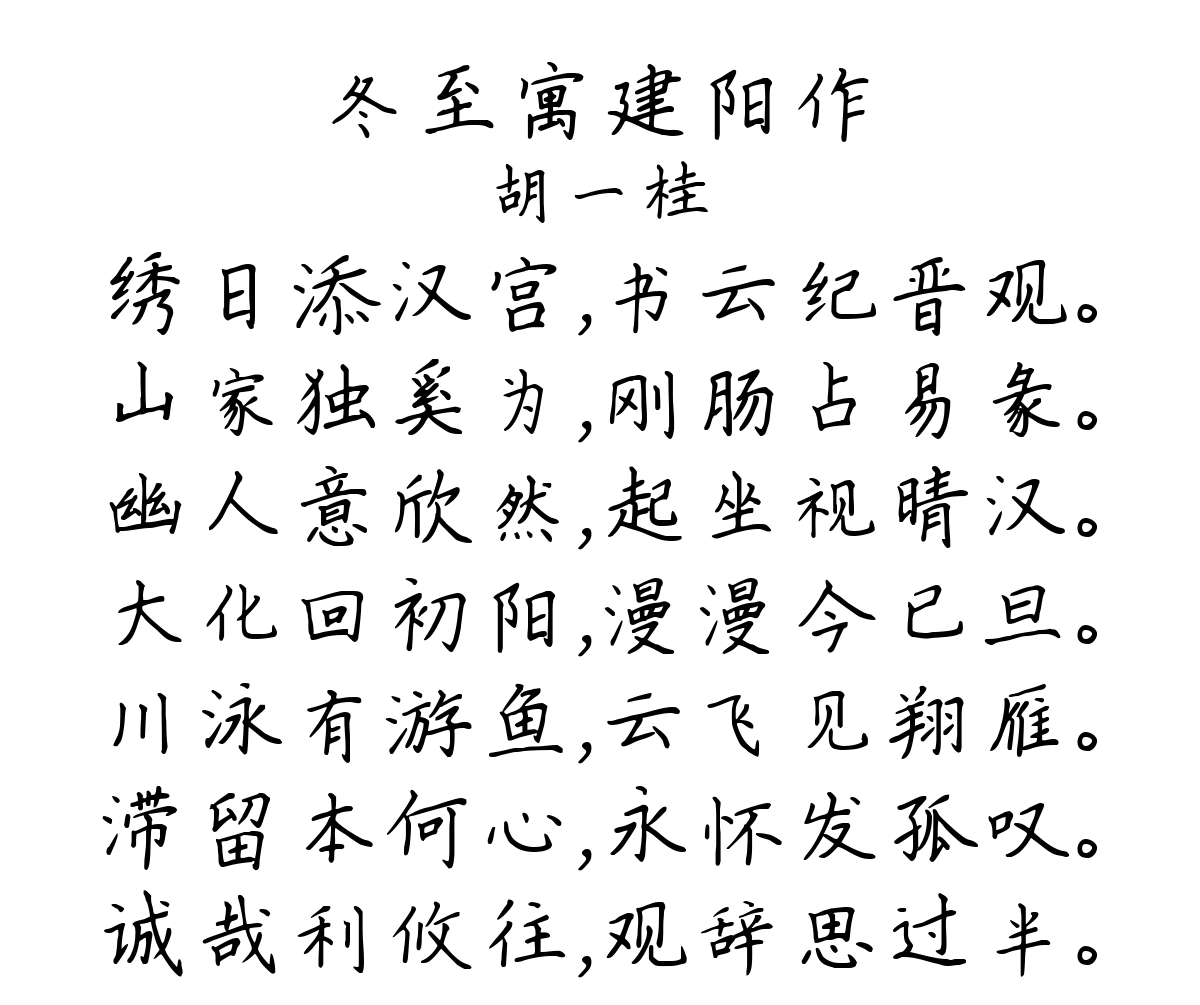 冬至寓建阳作
胡一桂
绣日添汉宫,书云纪晋观。
山家独奚为,刚肠占易彖。
幽人意欣然,起坐视晴汉。
大化回初阳,漫漫今已旦。
川泳有游鱼,云飞见翔雁。
滞留本何心,永怀发孤叹。
诚哉利攸往,观辞思过半。